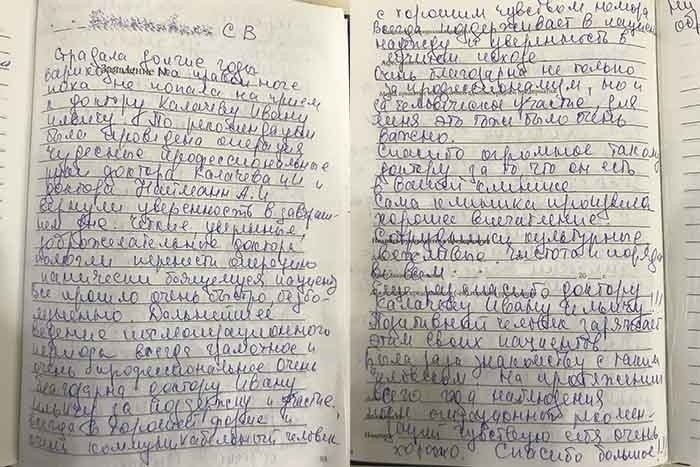 С В
Страдала долгие годы
варикозом на правой ноге
пока не попала на прием
к доктору Калачеву Ивану
Ильичу. По рекомендации
была проведена операция
Чудесные профессиональные
руки доктора Калачева И.И и
доктора Нитманн А.И
вернули уверенность в завтраш-
нем дне. Четкие уверенные,
доброжелательные доктора
помогли перенести операцию
панически боящемуся пациенту
Все прошло очень быстро, безбо-
лезненно. Дальнейшее
ведение послеоперационного
периода всегда грамотное и
очень профессиональное. Очень
благодарна доктору Ивану
Ильичу за поддержку и участие,
всегда в хорошей форме и
очень коммуникабельный человек
с хорошим чувством юмора
Всегда поддерживает в пациенте
надежду и уверенность в
лучшем исходе.
Очень благодарна не только
за профессионализм, но и
за человеческое участие, для
меня это тоже было очень
важно.
Спасибо огромное такому
доктору за то что он есть
в Вашей клинике
Сама клиника произвела
хорошее впечатление
Сотрудники культурные
вежливые. Чистота и порядок
во всем.
Еще раз спасибо доктору
Калачеву Ивану Ильичу!!!
Позитивный человек заряжает
этим своих пациентов
Была рада знакомству с таким
человеком. На протяжении
всего год наблюдения
после операционной рекомен-
даций чувствую себя очень
хорошо. Спасибо большое!!